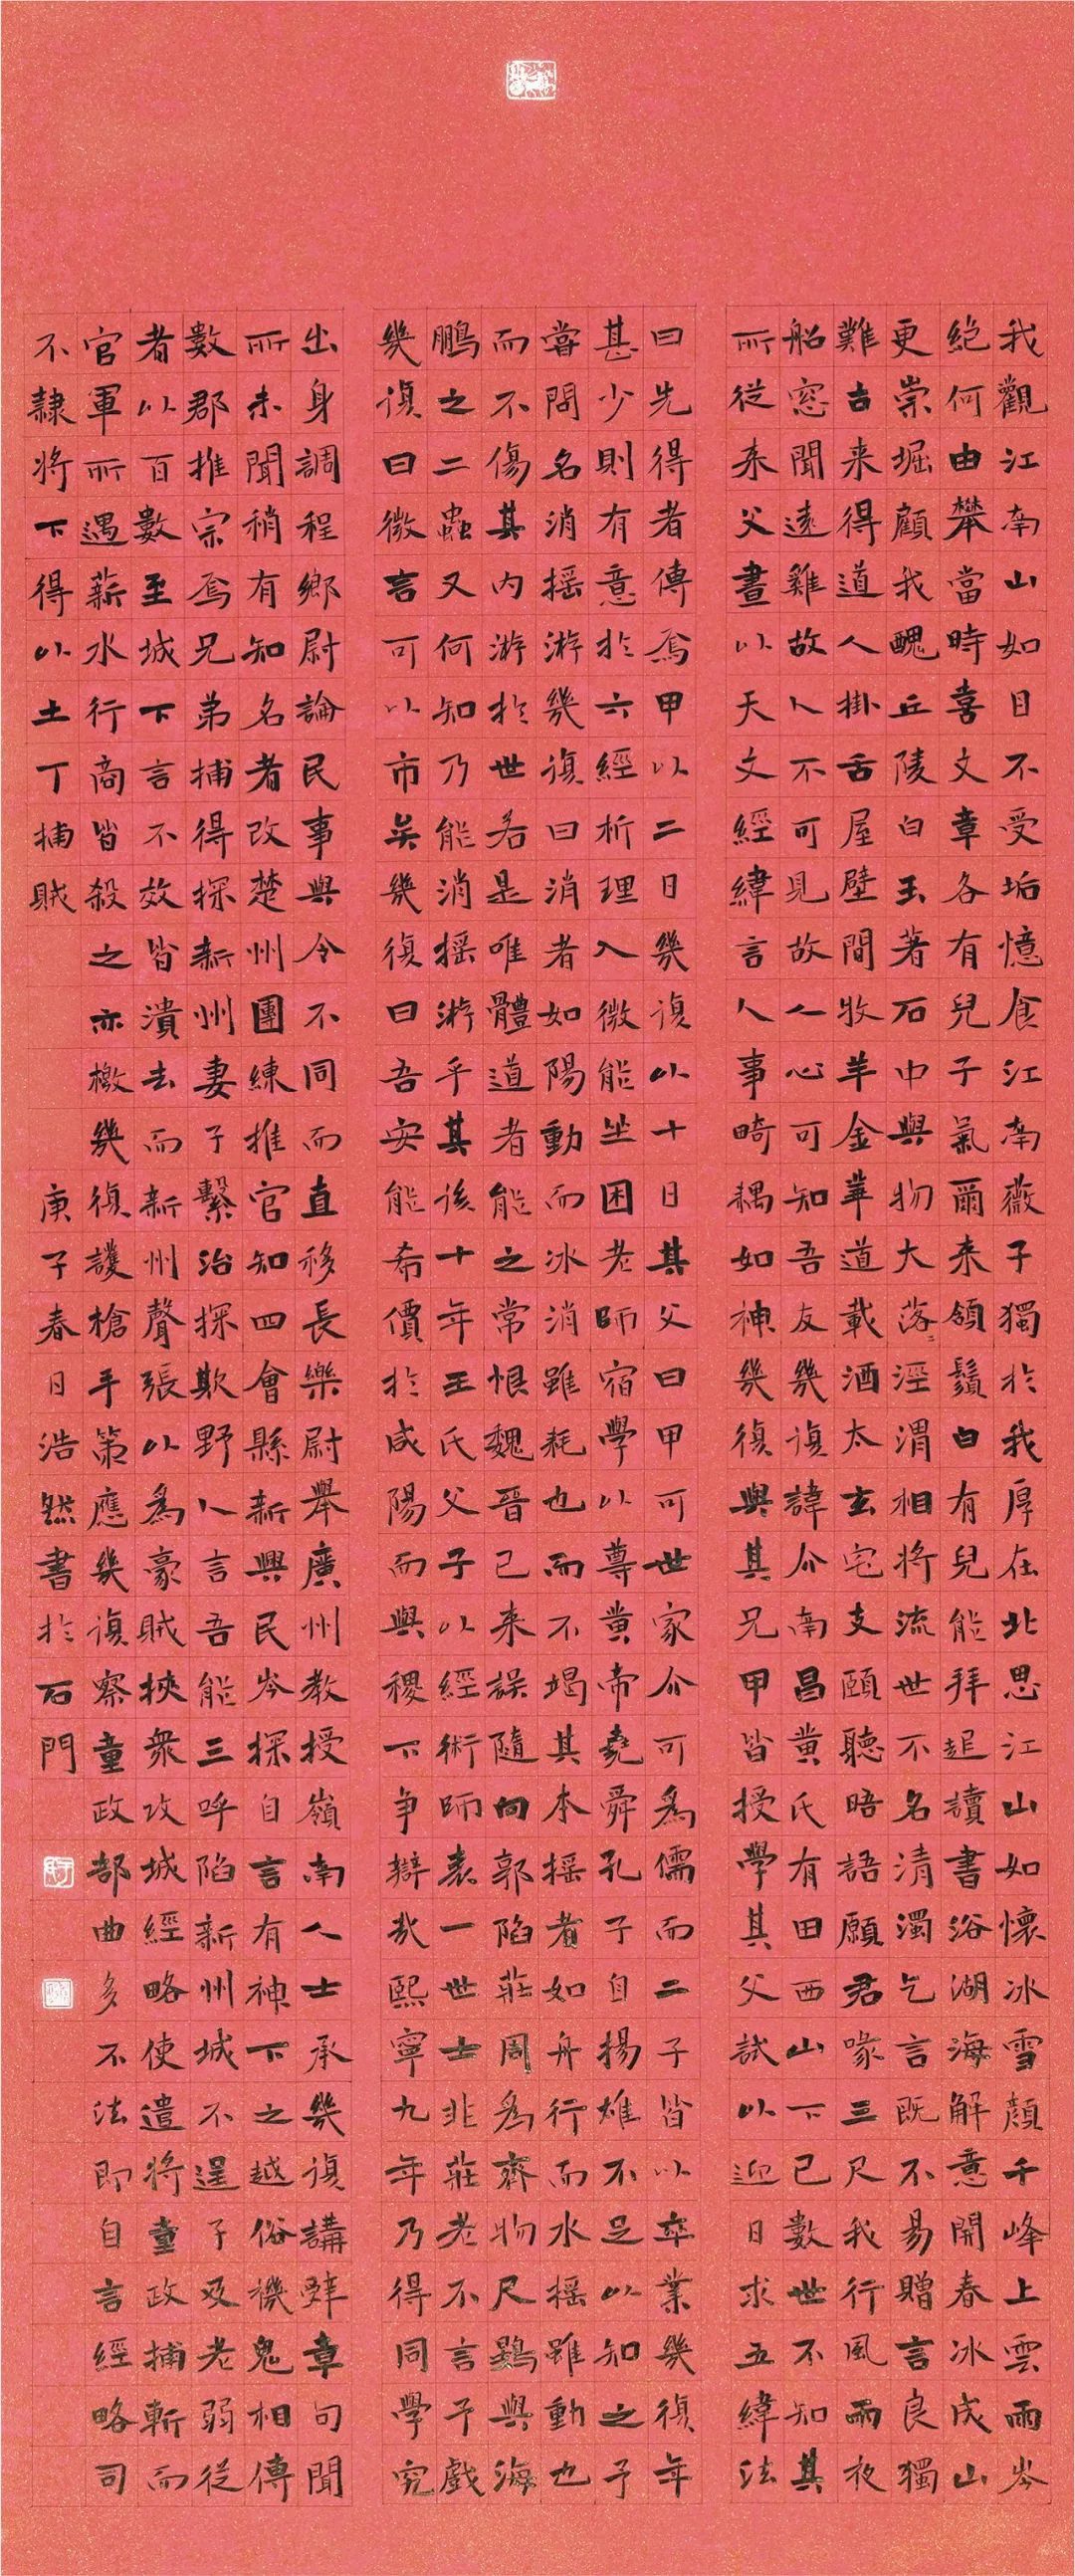 我觀江南山如目不受垢憶食江南薇子獨於我厚在北思江山如懷冰雪顏千峰上雲雨岑
絕何由攀當時喜文章各有兒子氣爾来領鬚白有兒能拜起讀書浴湖海解意開春冰成山
更崇堀顧我醜丘陵白玉著石中與物大落〻涇渭相將流世不名清濁乞言既不易贈言良獨
難古来得道人掛舌屋壁間牧羊金華道載酒太玄宅支頤聽晤語願君喙三尺我行風雨夜
船窓聞遠雞故人不可見故人心可知吾友幾復諱介南昌黃氏有田西山下已數世不知其
所從来父晝以天文經緯言人事畸耦如神幾復與其兄甲皆授學其父試以迎日求五緯法
曰先得者傳焉甲以二日幾復以十日其父曰甲可世家介可為儒而二子皆以卒業幾復年
甚少則有意於六經析理入微能坐困老師宿學以尊黃帝堯舜孔子自揚雄不足以知之予
嘗問名消搖游幾復曰消者如陽動而冰消雖耗也而不竭其本搖者如舟行而水搖雖動也
而不傷其內游於世若是唯體道者能之常恨魏晉已来誤隨向郭陷莊周為齊物尺鷃與海
鵬之二蟲又何知乃能消搖游乎其後十年王氏父子以經術師表一世士非莊老不言予戲
幾復曰微言可以市矣幾復曰吾安能希價於咸陽而與稷下爭辯哉熙寧九年乃得同學究
出身調程鄉尉論民事與令不同而直移長樂尉舉廣州教授嶺南人士承幾復講辭章句聞
所未聞稍有知名者改楚州團練推官知四會縣新興民岑探自言有神下之越俗禨鬼相傳
數郡推宗焉兄弟捕得探新州妻子繫治探欺野人言吾能三呼陷新州城不逞子及老弱從
者以百數至城下言不效皆潰去而新州聲張以為豪賊挾衆攻城經略使遣將童政捕斬而
官軍所遇薪水行商皆殺之亦檄幾復護槍手策應幾復察童政部曲多不法即自言經略司
不隸將下得以土丁捕賊
庚子春日浩然書於石門